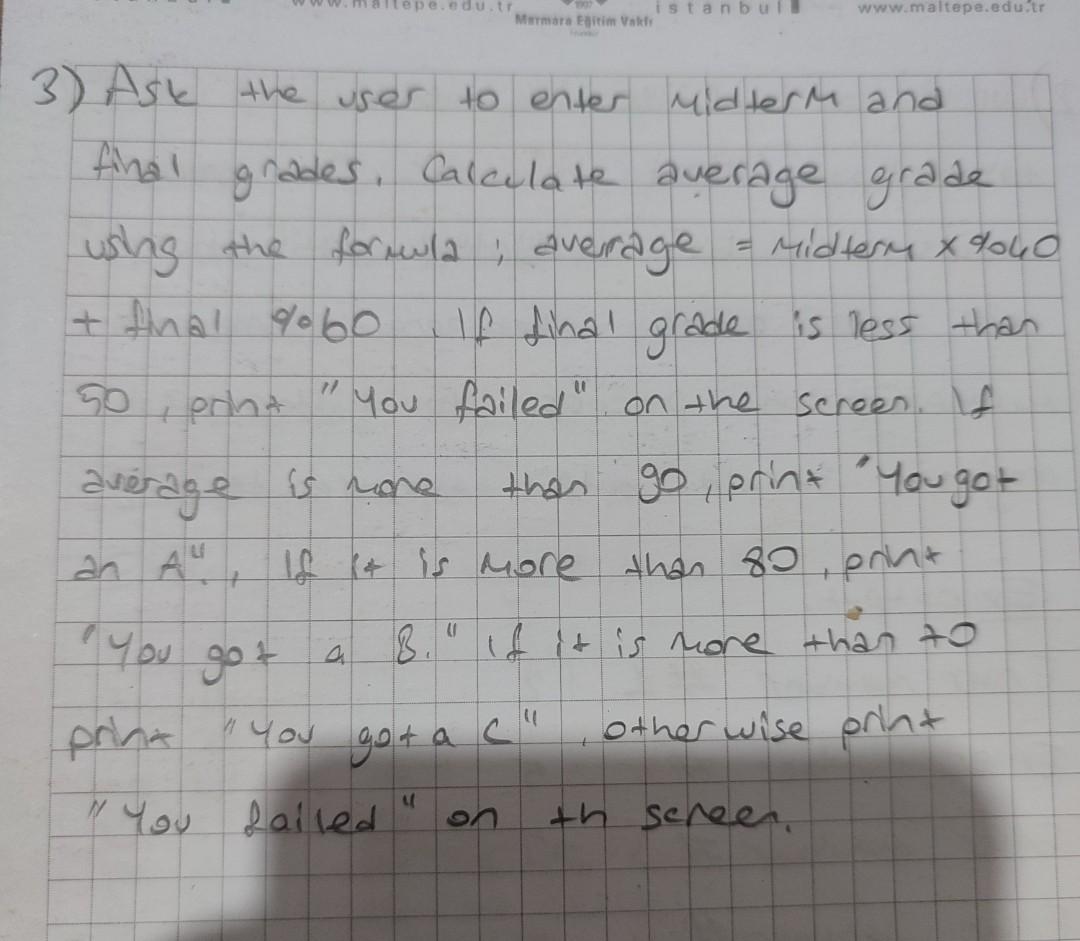 www.maltepe.edu.tr
Marmara Eğitim Vakfı
istanbul
www.maltepe.edu.tr
3) Ask the user to enter Midterm and
final grades. Calculate average grade
using the formula; average = Midterm x %40
+ final %60. If final grade is less than
50, print "You failed" on the screen. If
average is more than 90, print "You got
an A"., If it is more than 80, print
"You got a B." if it is more than 70
print "You got a C", otherwise print
"You failed" on th screen.